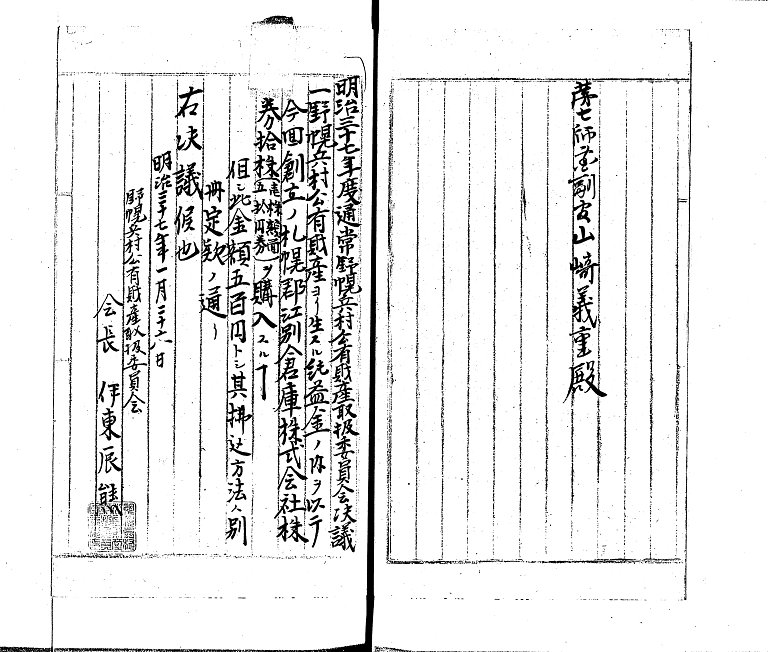 第七師団副官山崎義重殿
明治三十七年度通常野幌兵村公有財産取扱委員会決議
一野幌兵村公有財産ヨリ生スル純益金ノ内ヲ以テ
今回創立ノ札幌郡江別倉庫株式会社株
券拾株(壱株額面五拾円券)ヲ購入スルヿ
但シ此金額五百円トシ其払込方法ハ別
冊定款ノ通リ
右決議候也
明治三十七年一月二十六日
野幌兵村公有財産取扱委員会
会長 伊東辰